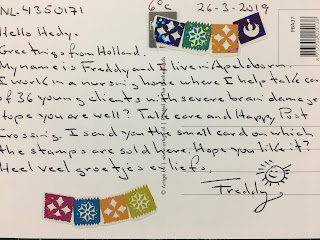 NL-4350171 6°C 26-3-2019
Hello Hedy.
Greetings from Holland.
My name is Freddy and I live in Apeldoorn.
I work in a nursing home where I help take care
of 36 young clients with severe brain damage
Hope you are well? Take care and Happy Post
Crossing. I send you the small card on which
the stamps are sold here. Hope you like it?
Heel veel groetjes en liefs.
Freddy